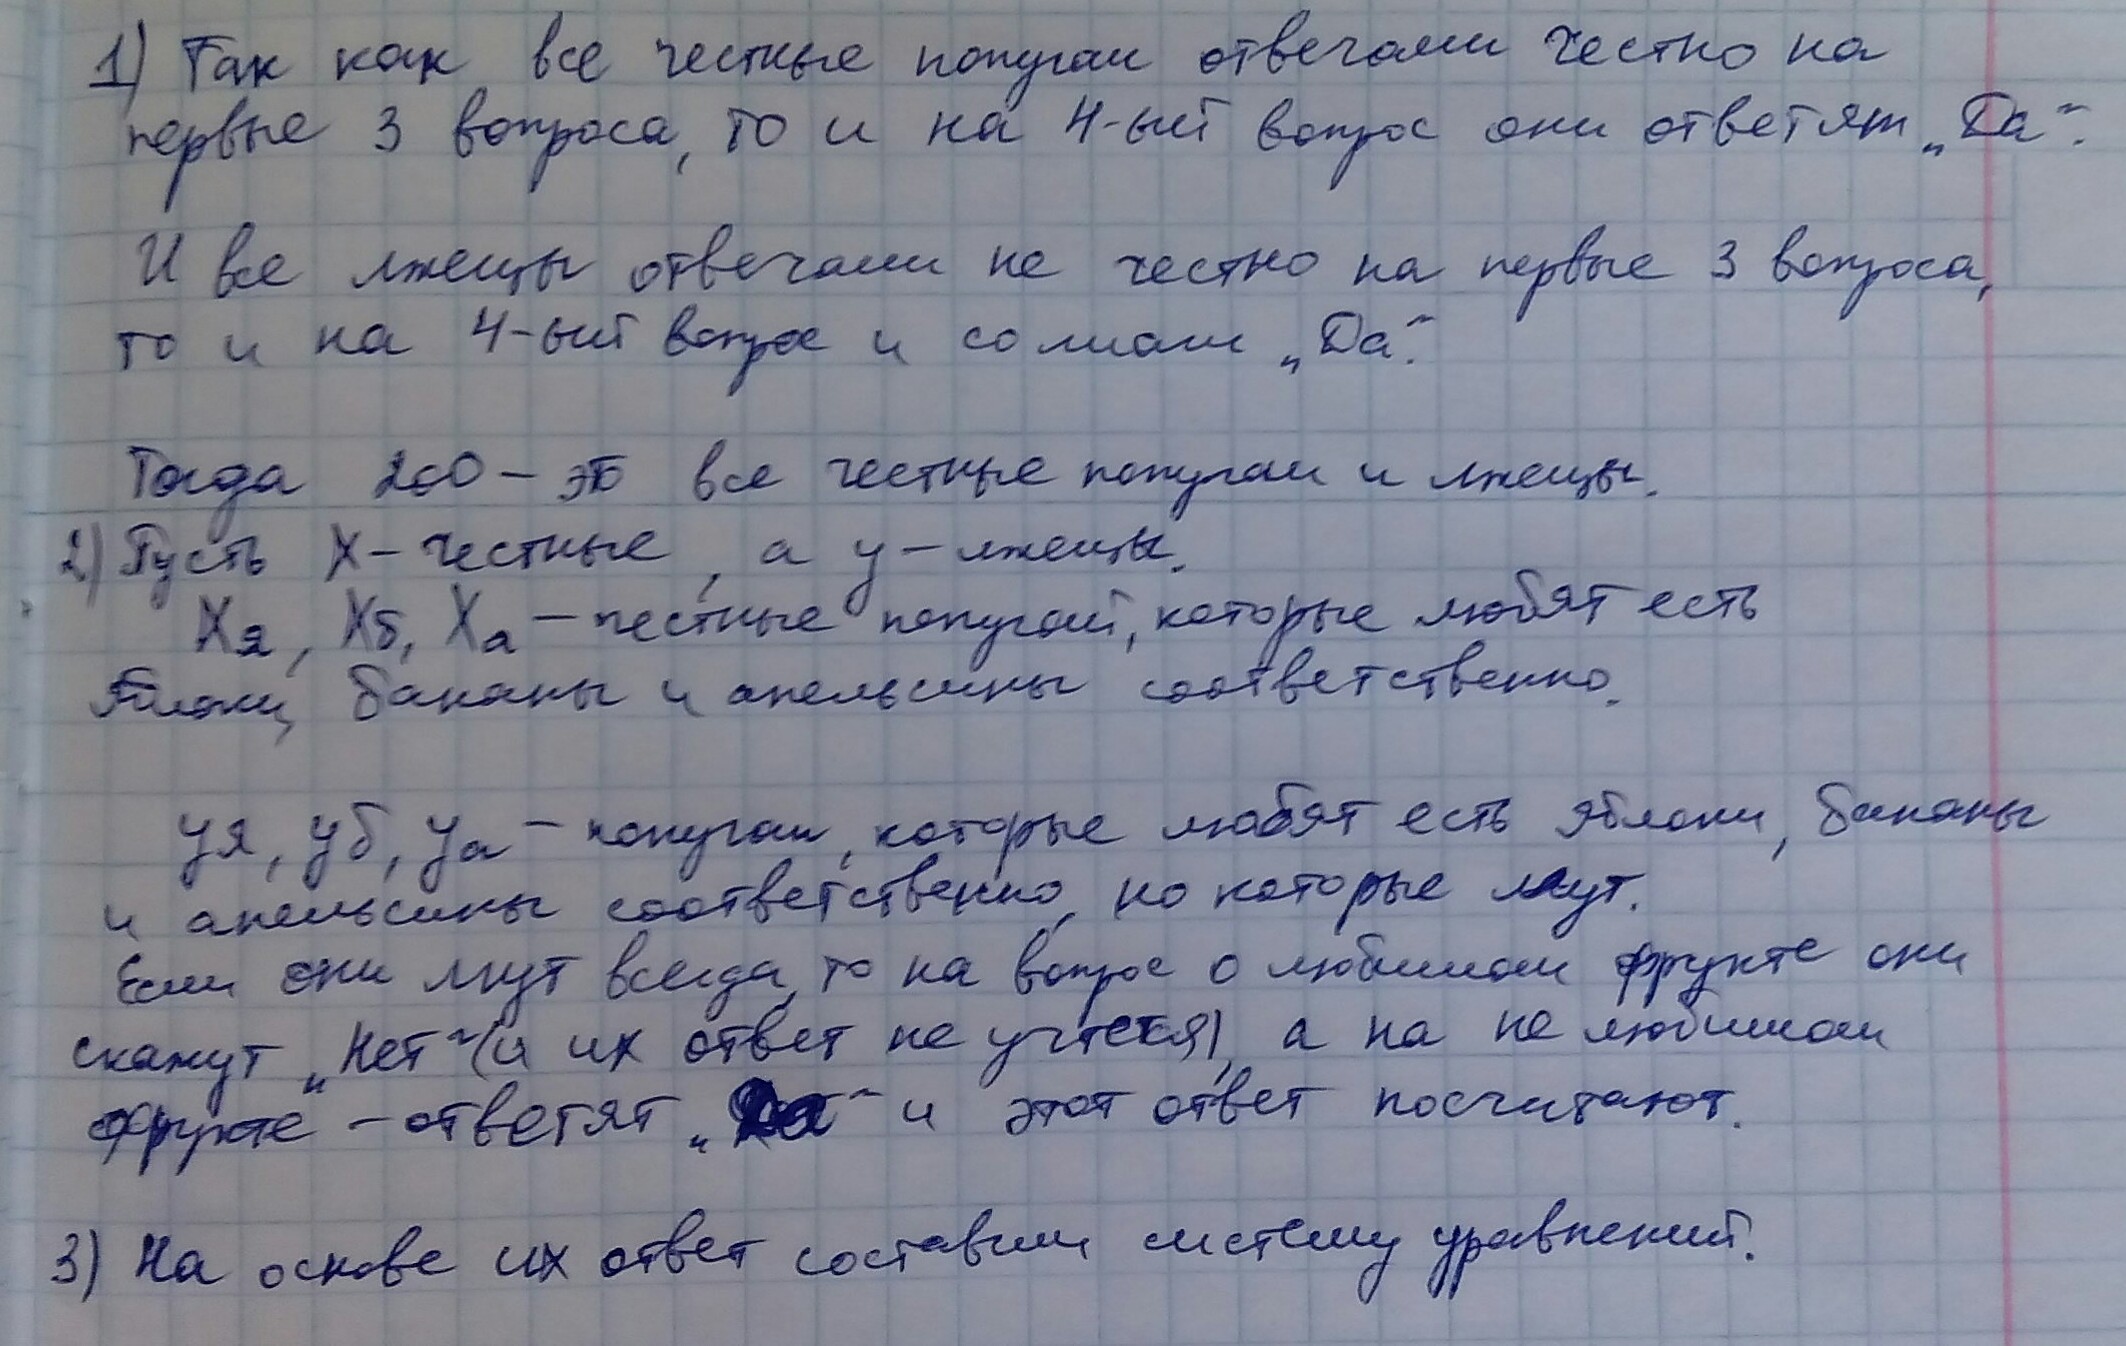 1) Так как все честные попугаи отвечали честно на
первые 3 вопроса, то и на 4-ый вопрос они ответят „Да“.
И все лжецы отвечали не честно на первые 3 вопроса,
то и на 4-ый вопрос и солгали „Да“.
Тогда 200 – это все честные попугаи и лжецы.
2) Пусть X – честные, а y – лжецы.
Xя, Xб, Xа – честные попугаи, которые любят есть
яблоки, бананы и апельсины соответственно.
yя, yб, yа – попугаи, которые любят есть яблоки, бананы
и апельсины соответственно, но которые лгут.
Если они лгут всегда, то на вопрос о любимом фрукте они
скажут „Нет“ (и их ответ не учтется), а на не любимом
фрукте – ответят „Да“ и этот ответ посчитают.
3) На основе их ответ составим систему уравнений.